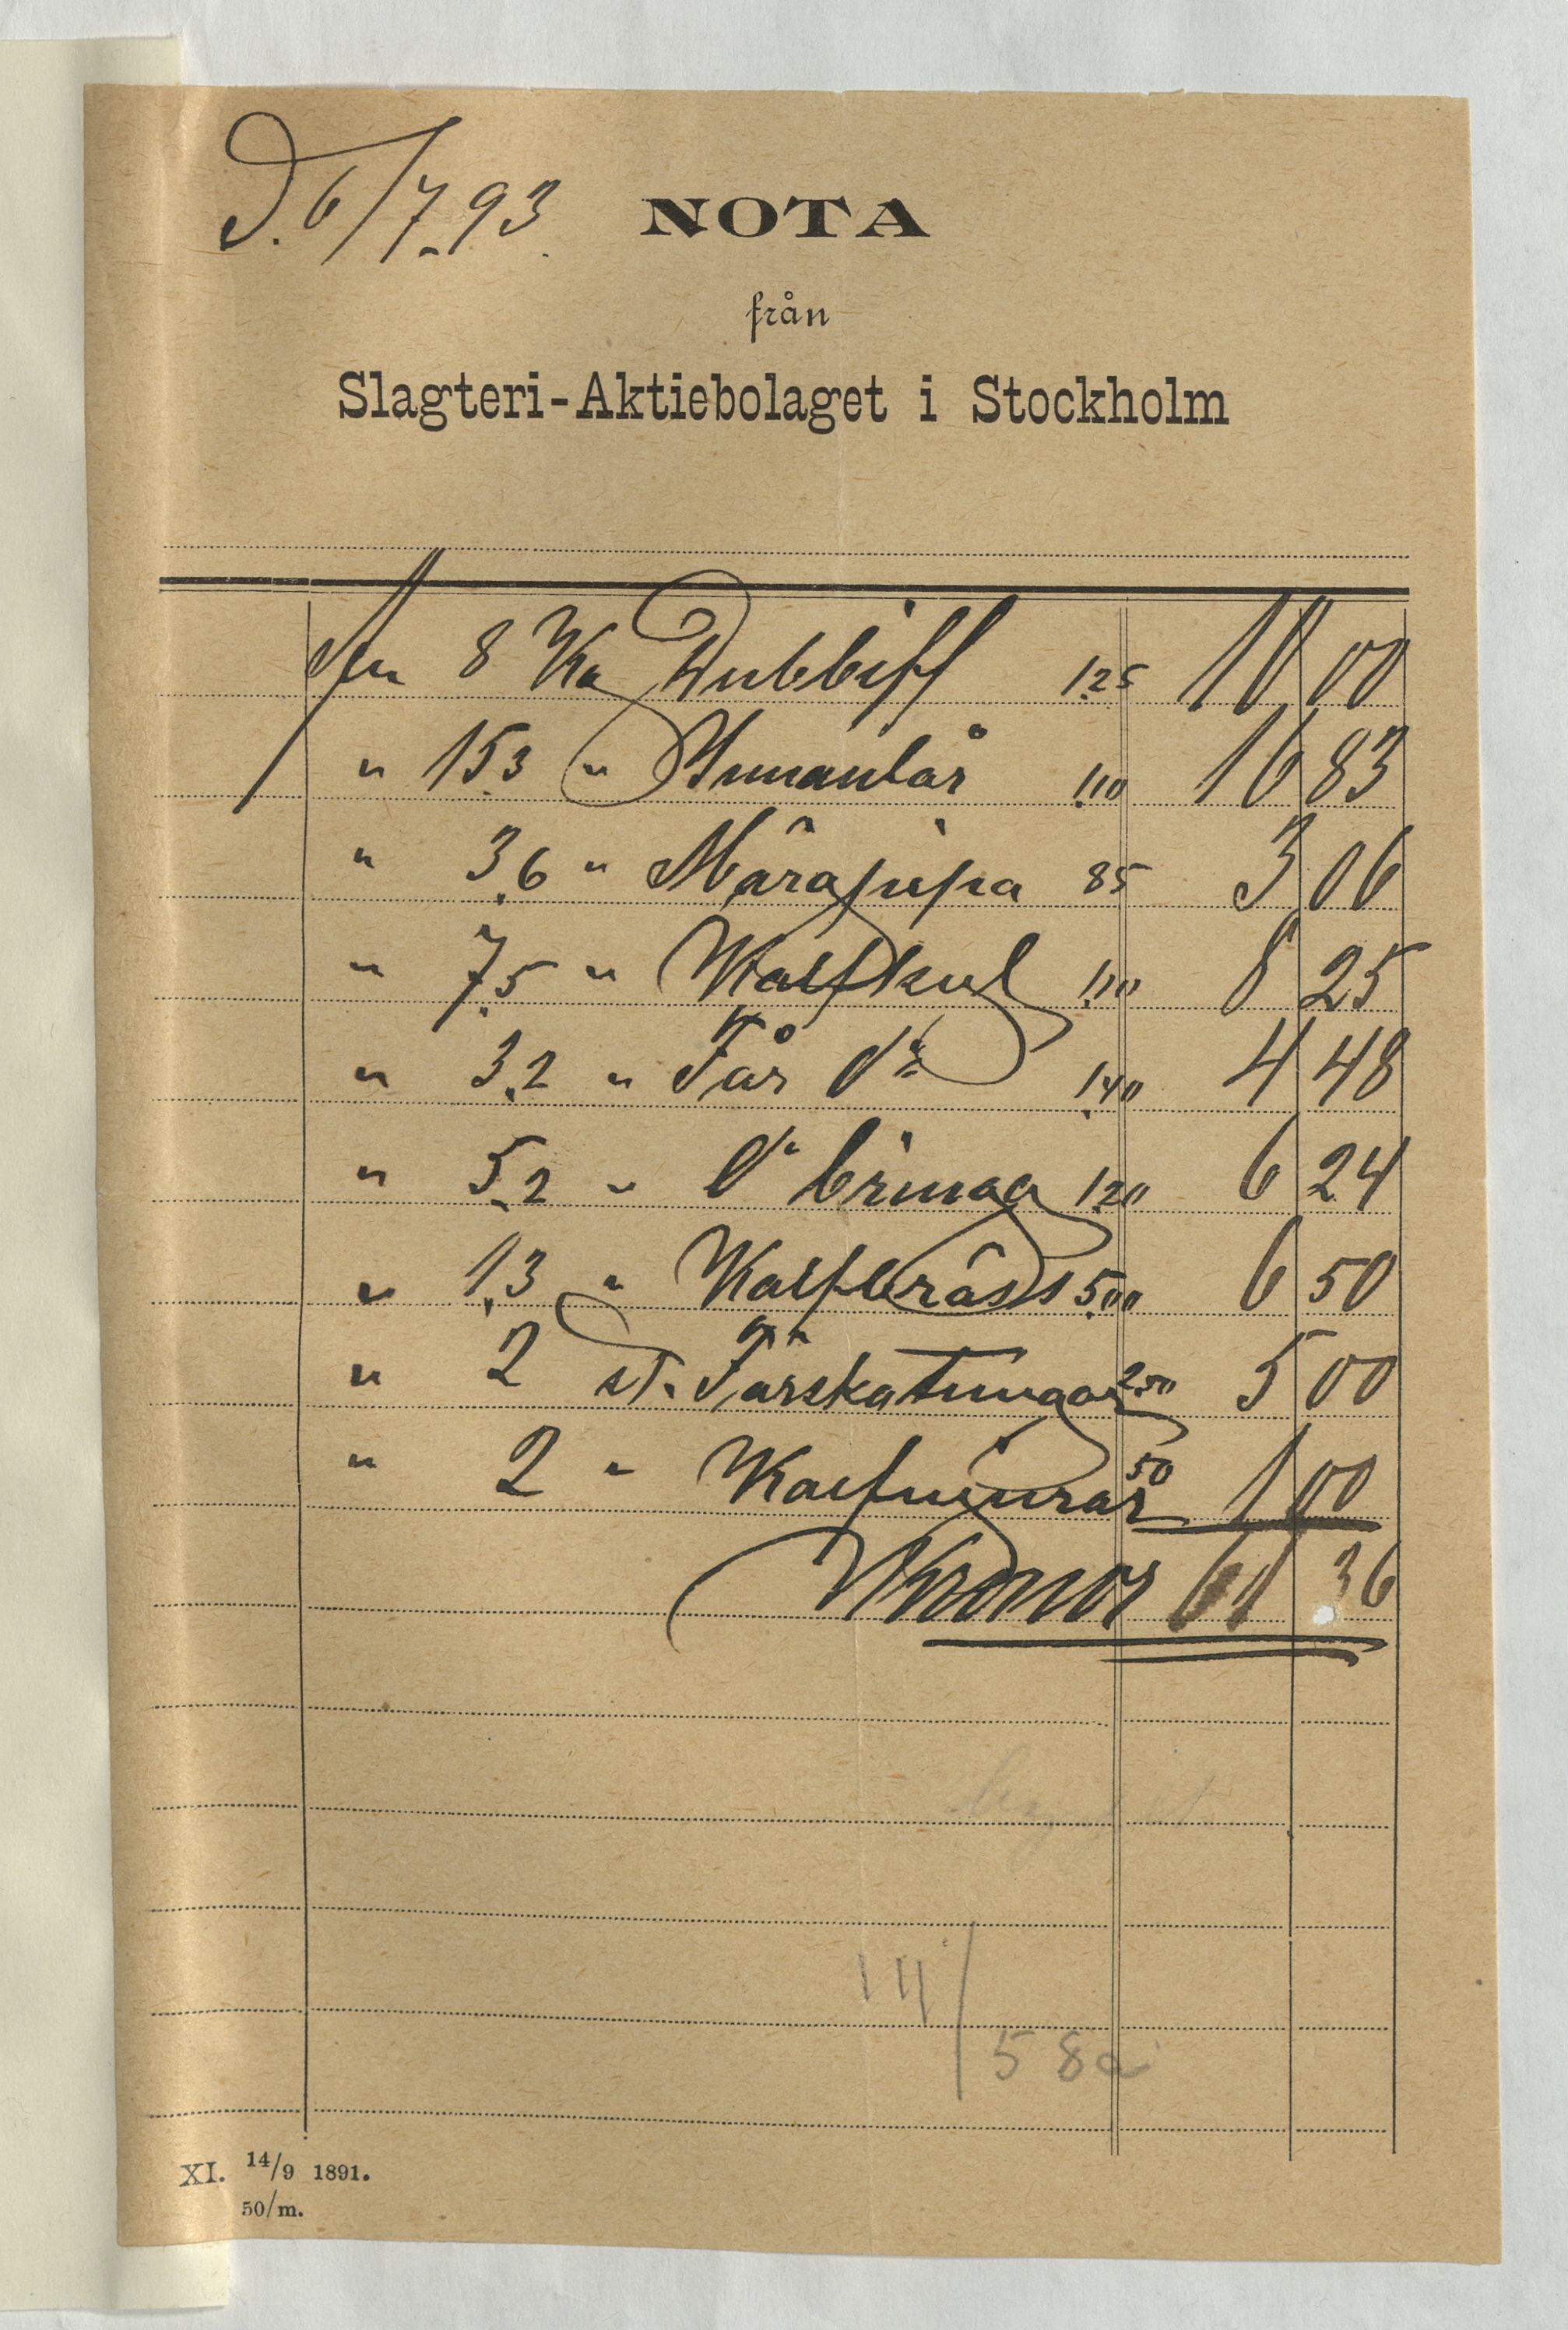 D. 6/7 93.
NOTA
från
Slagteri-Aktiebolaget i Stockholm
8 Kg Rubbiff 1.25 10 00
" 15.3 " Innanlår 1.10 16 83
" 3.6 " Märgpipa 85 3 06
" 7.5 " Kalfkul 1.10 8 25
" 3.2 " Får do 1.40 4 48
" 5.2 " do bringa 1.20 6 24
" 1.3 " Kalfbräss 5.00 6 50
" 2 st. Färska tungor 2.50 5 00
" 2 " Kalfnjurar 50 1 00
Kronor 61 36
14/5 8a
XI. 14/9 1891.
50/m.